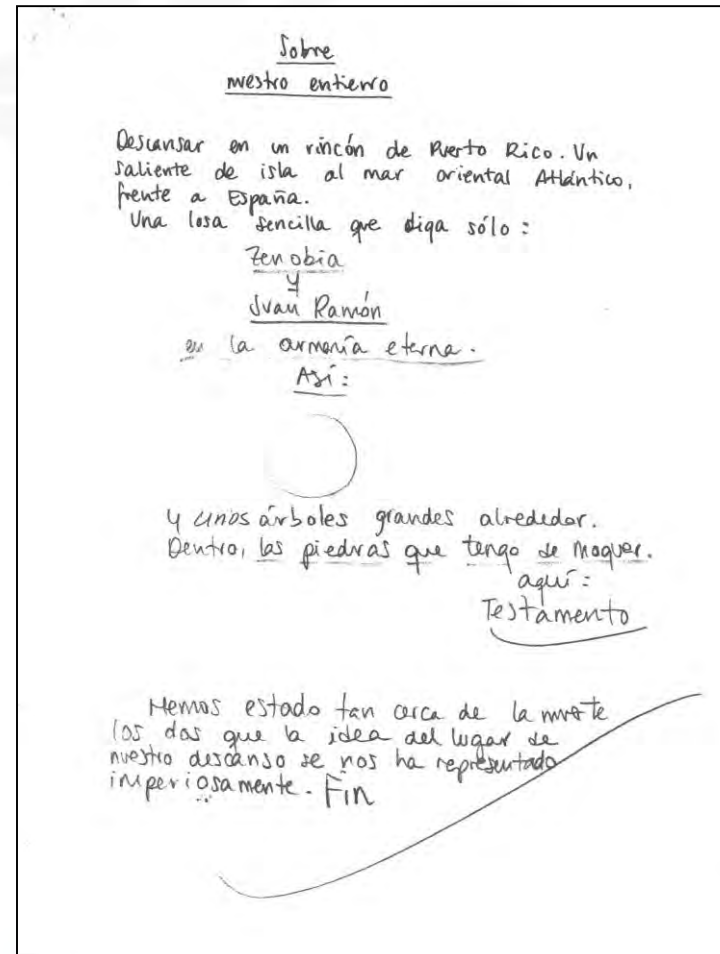 Sobre
nuestro entierro
Descansar en un rincón de Puerto Rico. Un
saliente de isla al mar oriental Atlántico,
frente a España.
Una losa sencilla que diga sólo:
Zenobia
y
Juan Ramón
en la armonía eterna.
Así:
y unos árboles grandes alrededor.
Dentro, las piedras que tengo de Moguer.
aquí:
Testamento
Hemos estado tan cerca de la muerte
los dos que la idea del lugar de
nuestro descanso se nos ha representado
imperiosamente. Fin